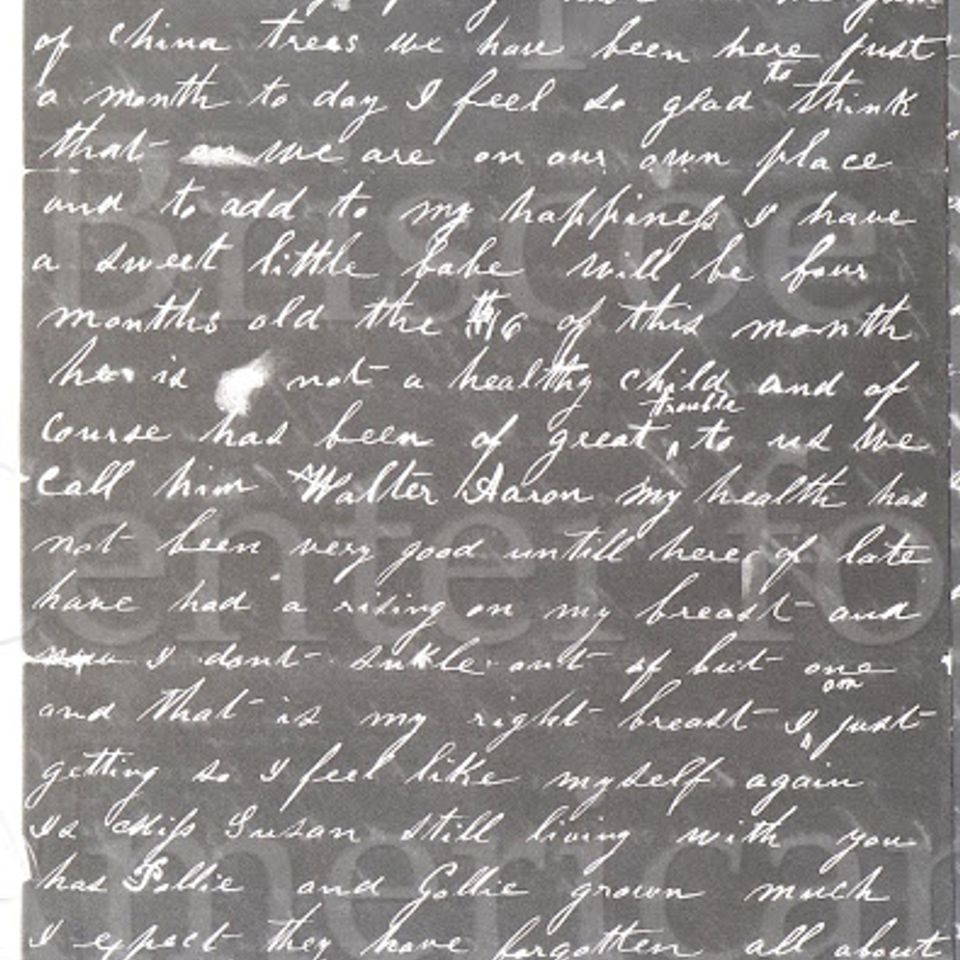 of china trees we have been here just
a month to day I feel so glad to think
that on we are on our own place
and to add to my happiness I have
a sweet little babe will be four
months old the 16 of this month
he is not a healthy child and of
course has been of great trouble to us We
call him Walter Aaron my health has
not been very good untill here of late
have had a rising on my breast and
now I dont sukle out of but one
and that is my right breast I am just
getting so I feel like myself again
Is Miss Susan still living with you
has Pollie and Gollie grown much
I expect they have forgotten all about
Briscoe
Center for
American